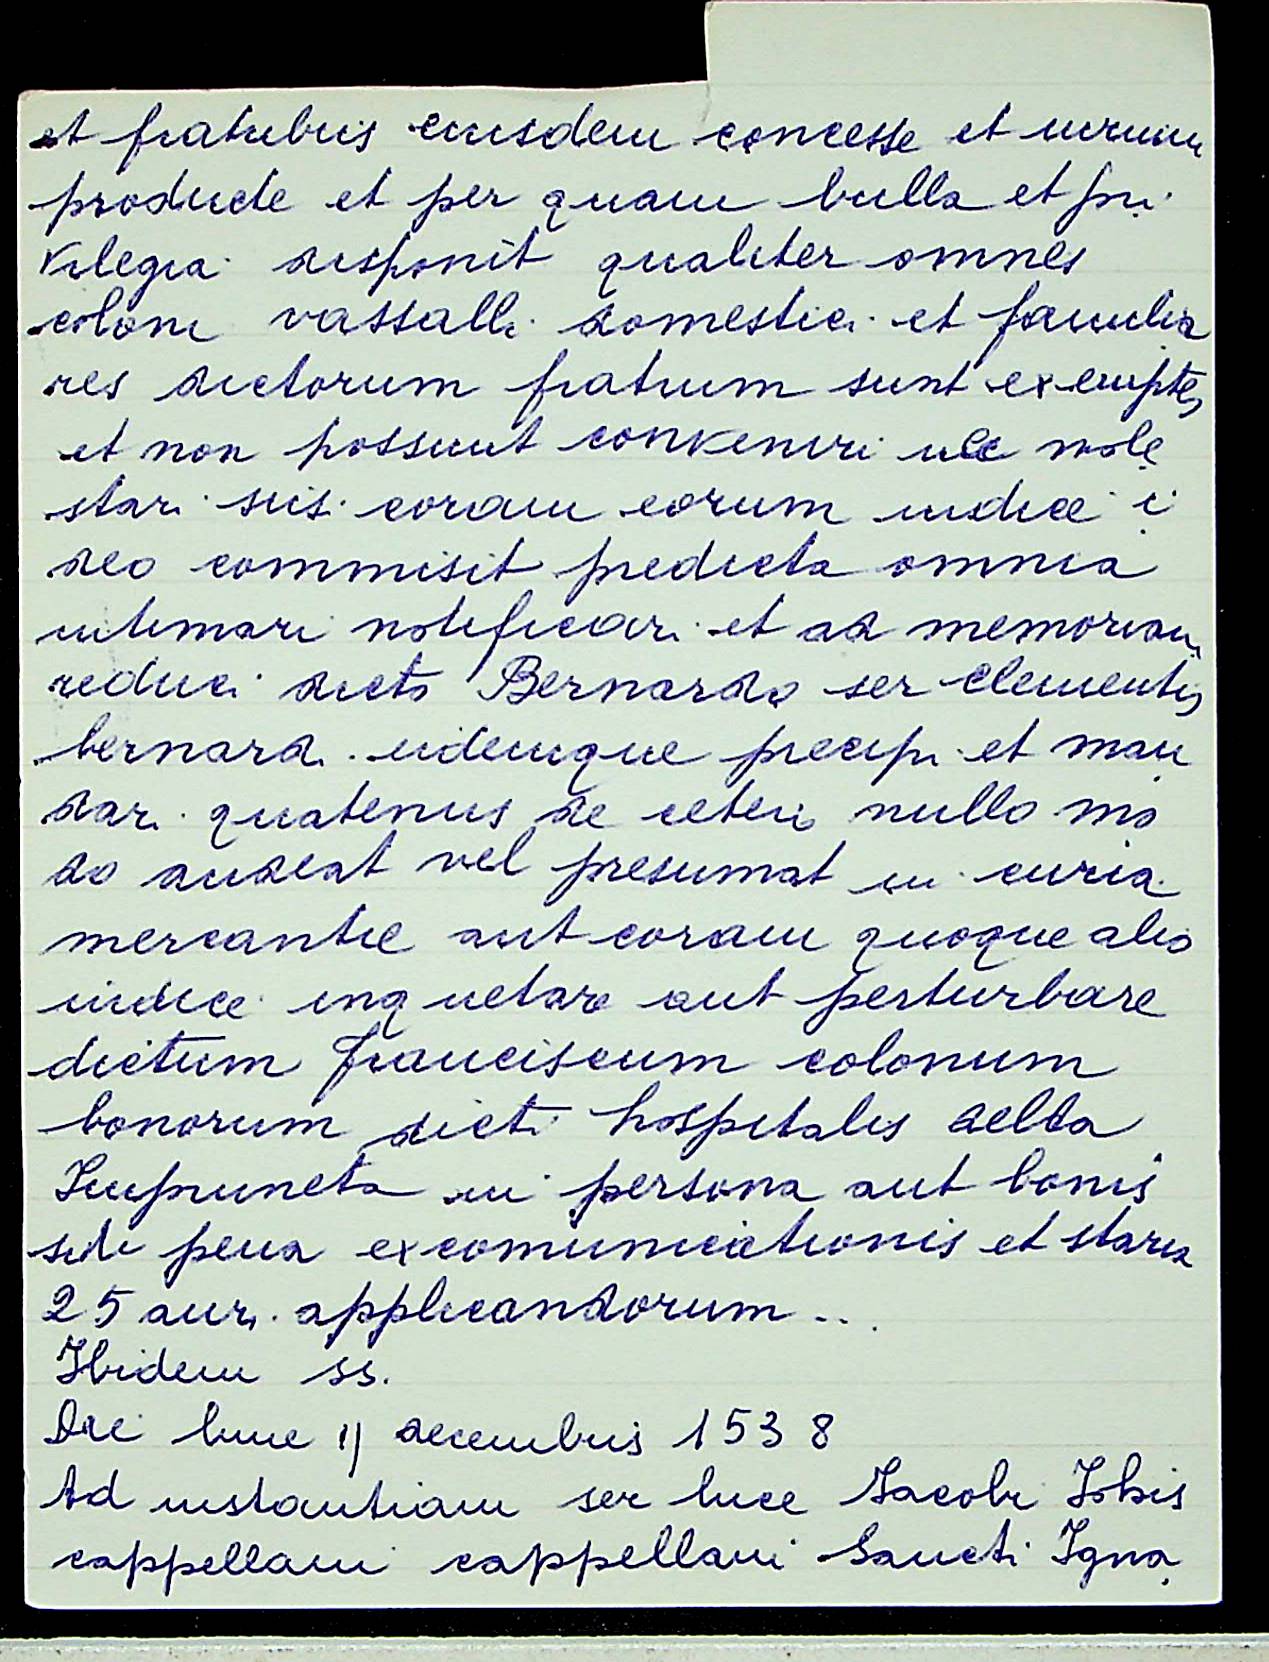 et fratribus eiusdem concesse et
producte et per quam bulla et pri
vilegia disponit qualiter omnes
coloni vassalli domestici et familia
res dictorum fratrum sunt exempti
et non possunt conveniri nec mole
stari coram eorum iudice i
deo commisit predicta omnia
intimari notificari et ad memoriam
reduci dicto Bernardo ser Clementis
bernardi eidemque precipi et man
dari quatenus de ceteri nullo mo
do audeat vel presumat in curia
mercantie aut coram quoque alio
iudice inquietare aut perturbare
dictum Franciscum colonum
bonorum dicti hospitalis della
Impruneta in persona aut bonis
sub pena excomunicationis et
25 aur. applicandorum ...
Ibidem ss.
Die lune 11 decembris 1538
Ad instantiam ser luce Iacobi
cappellani cappellani Sancti Igna